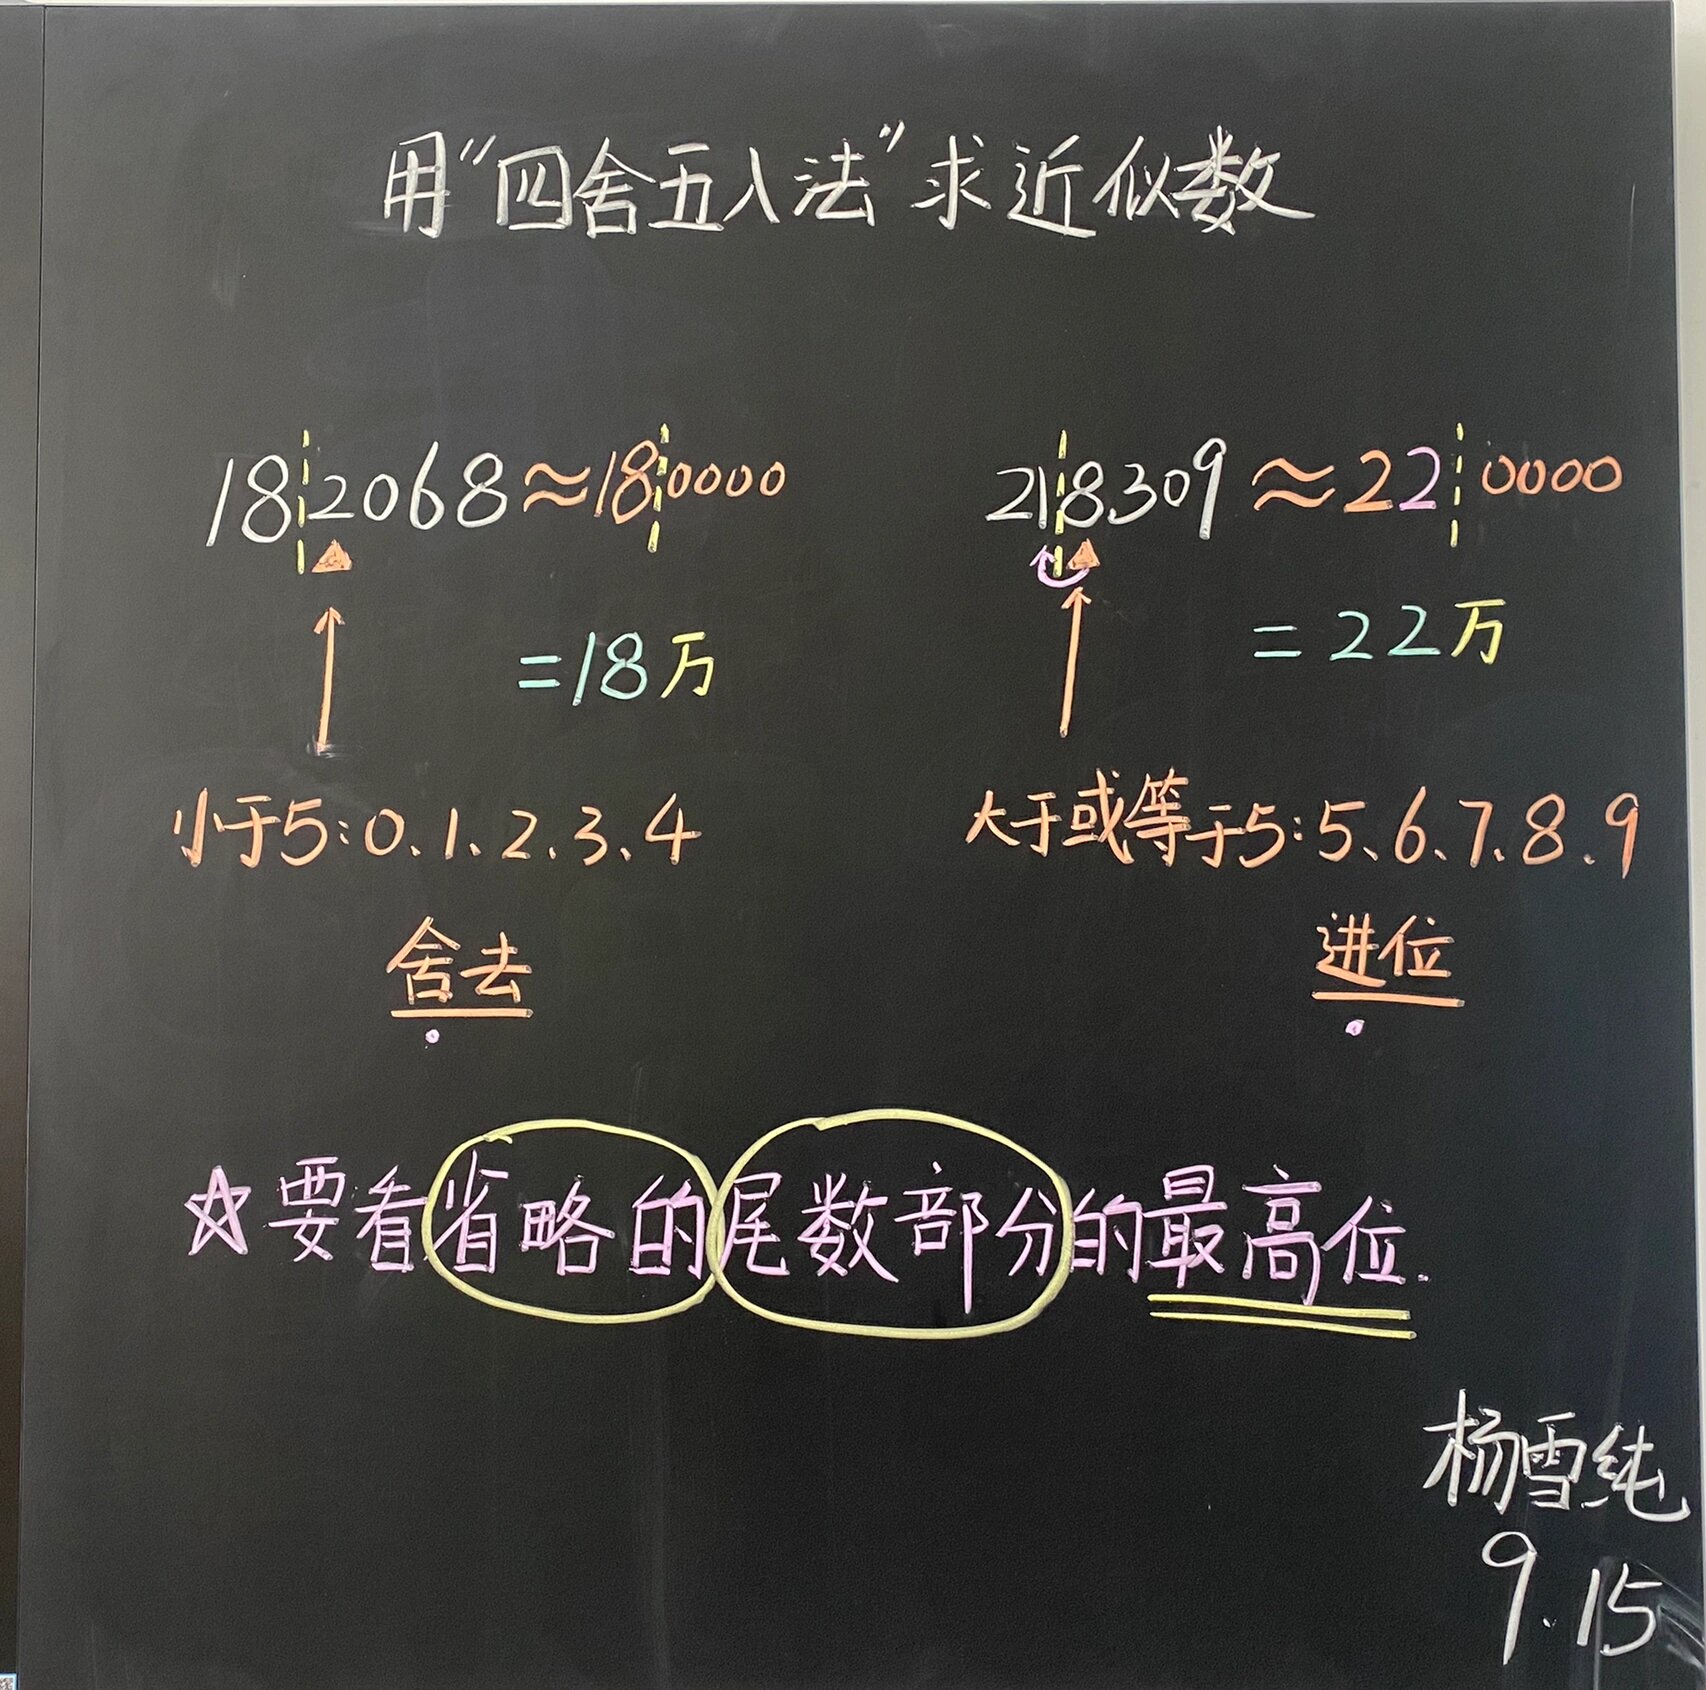 用“四舍五入法”求近似数
182068≈180000
=18万
小于5:0、1、2、3、4
舍去
218309≈220000
=22万
大于或等于5:5、6、7、8、9
进位
☆要看省略的尾数部分的最高位.
杨雪纯
9.15